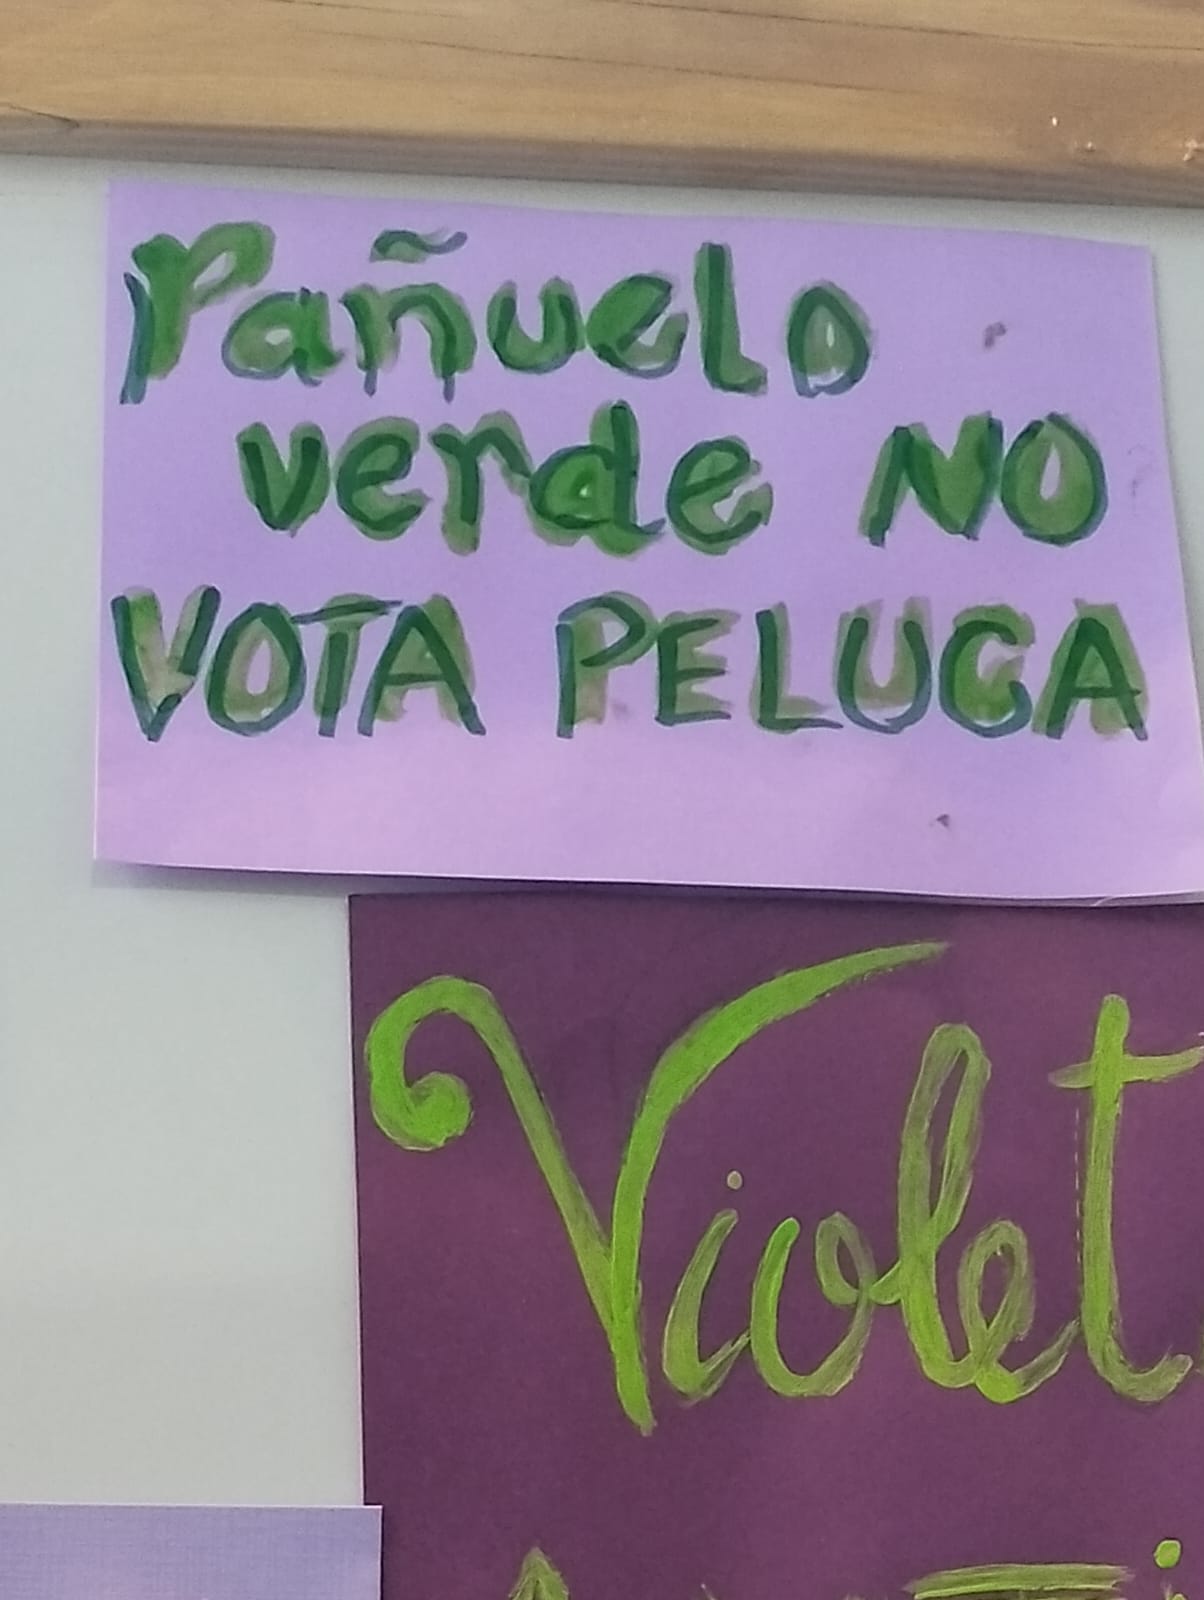 Pañuelo
verde NO
VOTA PELUCA
Violet